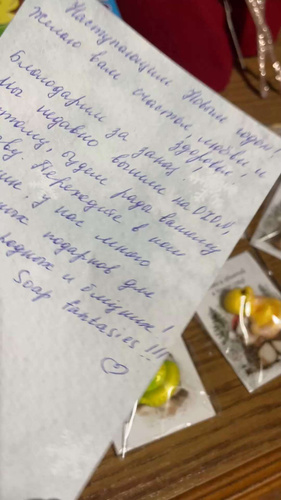 Наступающим Новым годом!
Желаю вам счастья, любви и
здоровья!
Благодарим за заказ,
мы недавно вышли на OZON,
этому, будем рады вашему
ву. Переходите в наш
ин, у нас много
ных подарков для
родных и близких!
Soap fantasies!!!